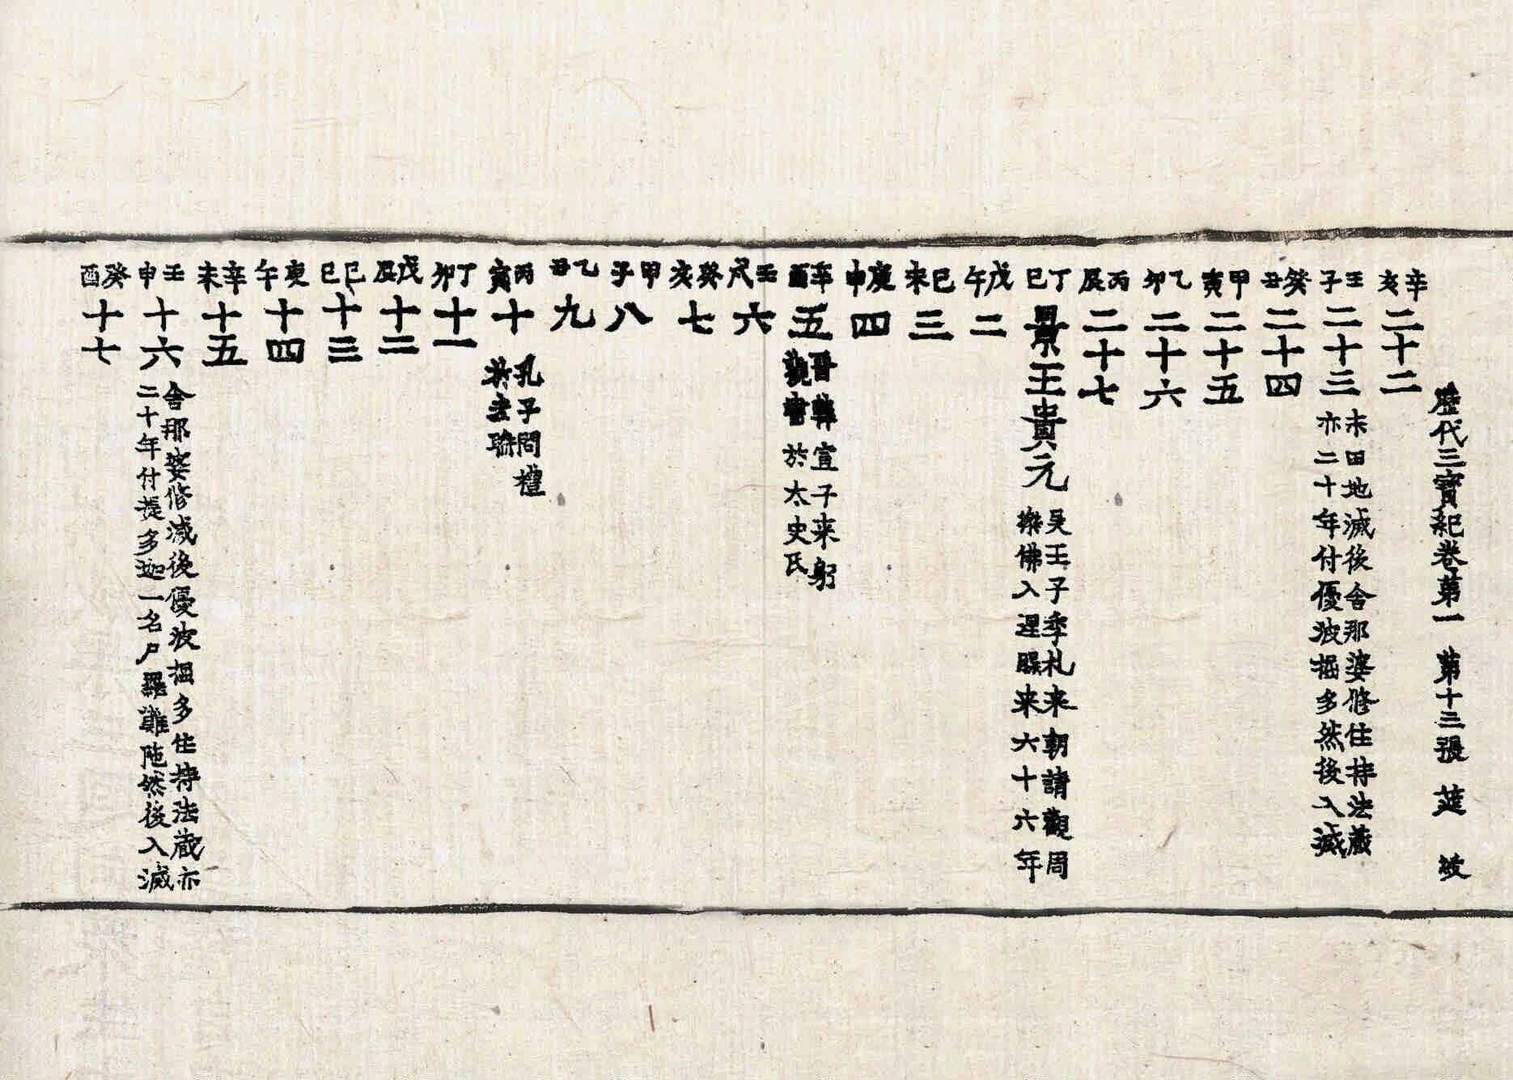 歷代三寶紀卷第一 第十三張 莚 坡
辛亥 二十二
壬子 二十三 末田地滅後舍那婆修住持法藏
亦二十年付優波掘多然後入滅
癸丑 二十四
甲寅 二十五
乙卯 二十六
丙辰 二十七
丁巳 景王貴元 吳王子季札来朝請觀周
樂佛入涅槃来六十六年
戊午 二
己未 三
庚申 四
辛酉 五 晋韓宣子来躬
觀書於太史氏
壬戌 六
癸亥 七
甲子 八
乙丑 九
丙寅 十 孔子問禮
於老聃
丁卯 十一
戊辰 十二
己巳 十三
庚午 十四
辛未 十五
壬申 十六 舍那婆修滅後優波掘多住持法藏亦
二十年付提多迦一名尸羅難陁然後入滅
癸酉 十七